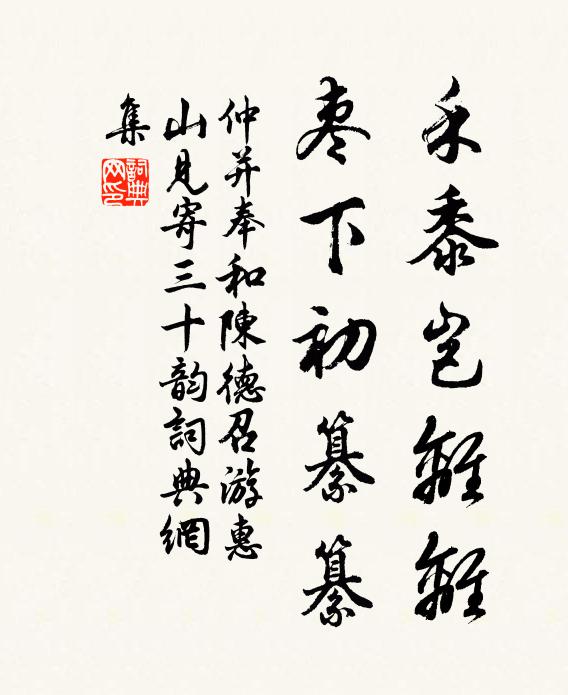 禾黍岂離離
枣下初纂纂
仲并奉和陳德召游惠
山見寄三十韵詞典網
集
詞典
网印